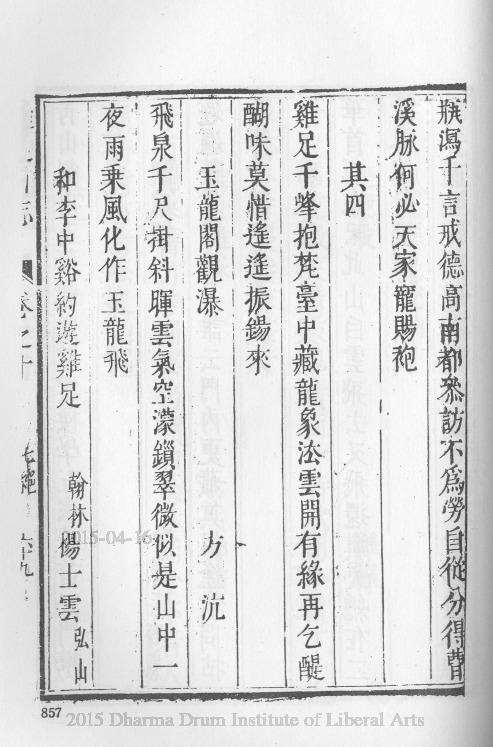 瓶瀉千言戒德高南都參訪不為勞自從分得曹
溪脉何必天家寵賜袍
其四
雞足千峰抱梵臺中藏龍象法雲開有緣再乞醍
醐味莫惜遙遙振錫來
玉龍閣觀瀑 方沆
飛泉千尺掛斜暉雲氣空濛鎖翠微似是山中一
夜雨乗風化作玉龍飛
和李中谿約遊雞足 翰林楊士雲弘山
山志 卷之十
857
2015-04-16
2015 Dharma Drum Institute of Liberal Arts